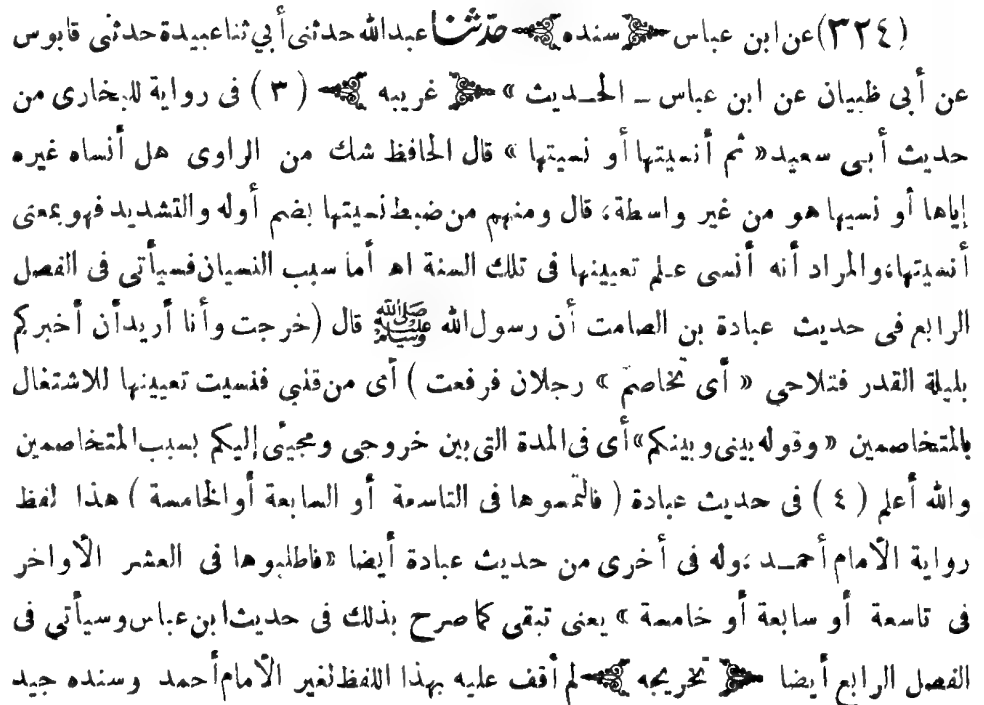 (٣٢٤) عن ابن عباس ﴿سنده﴾ حدثنا عبدالله حدثنى أبي ثنا عبيدة حدثنى قابوس
عن أبى ظبيان عن ابن عباس ــ الحـديث » ﴿غريبه﴾ (٣) فى رواية للبخارى من
حديث أبى سعيد « ثم أنسيتها أو نسيتها » قال الحافظ شك من الراوى هل أنساه غيره
إياها أو نسيها هو من غير واسطة، قال ومنهم من ضبط نسيتها بضم أوله والتشديد فهو بمعنى
أنسيتها، والمراد أنه أنسى علم تعيينها فى تلك السنة اهـ أما سبب النسيان فسيأتى فى الفصل
الرابع فى حديث عبادة بن الصامت أن رسول الله ﷺ قال (خرجت وأنا أريد أن أخبركم
بليلة القدر فتلاحى « أى تخاصم » رجلان فرفعت) أى من قلبى فنسيت تعيينها للاشتغال
بالمتخاصمين «وقوله بينى وبينكم» أى فى المدة التى بين خروجى ومجيئى إليكم بسبب المتخاصمين
والله أعلم (٤) فى حديث عبادة (فالتمسوها فى التاسعة أو السابعة أو الخامسة) هذا لفظ
رواية الأمام أحمـد ،وله فى أخرى من حديث عبادة أيضا «فاطلبوها فى العشر الأواخر
فى تاسعة أو سابعة أو خامسة » يعنى تبقى كما صرح بذلك فى حديث ابن عباس وسيأتي فى
الفصل الرابع أيضا ﴿تخريجه﴾ لم أقف عليه بهذا اللفظ لغير الأمام أحمد وسنده جيد